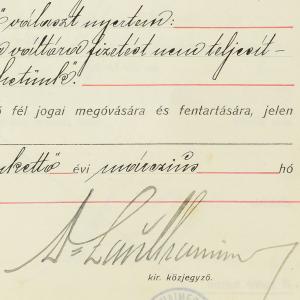 választ nyertem:
váltóra fizetést nem teljesít-
hetünk".
fél jogai megóvására és fentartására, jelen
évi március hó
kir. közjegyző.